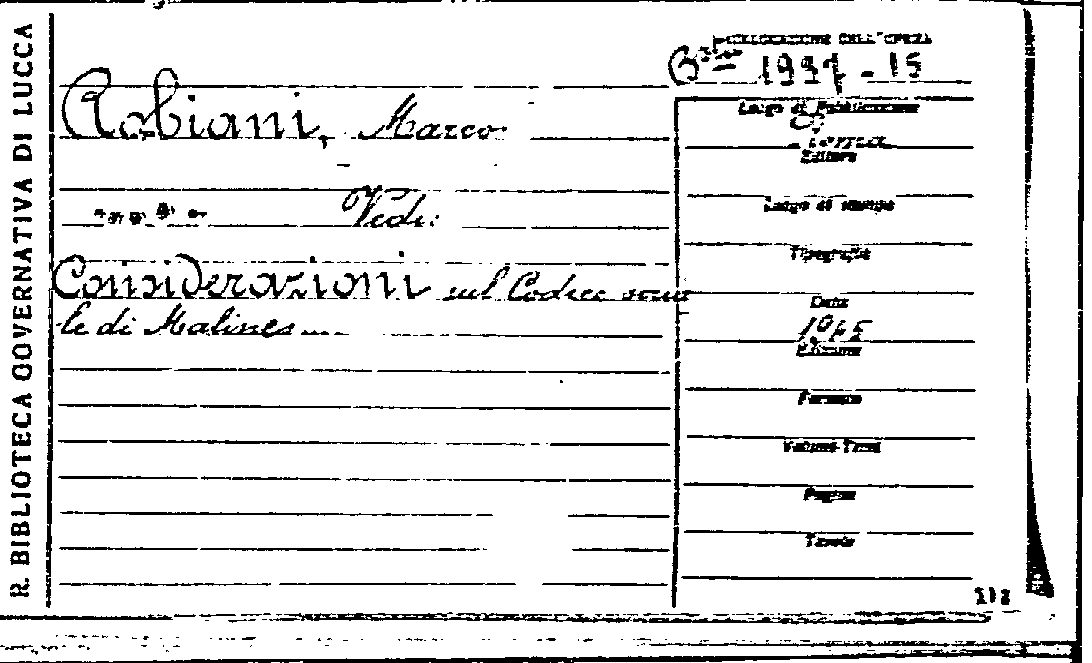 R. BIBLIOTECA GOVERNATIVA DI LUCCA
COLLOCAZIONE DELL'OPERA
1997 - 15
Robiani, Marco
Vedi:
Considerazioni sul Codice socia
le di Malines...
Luogo di Pubblicazione
Editore
Luogo di stampa
Tipografia
Data
1945
Edizione
Formato
Volumi-Tomi
Pagine
Tavole